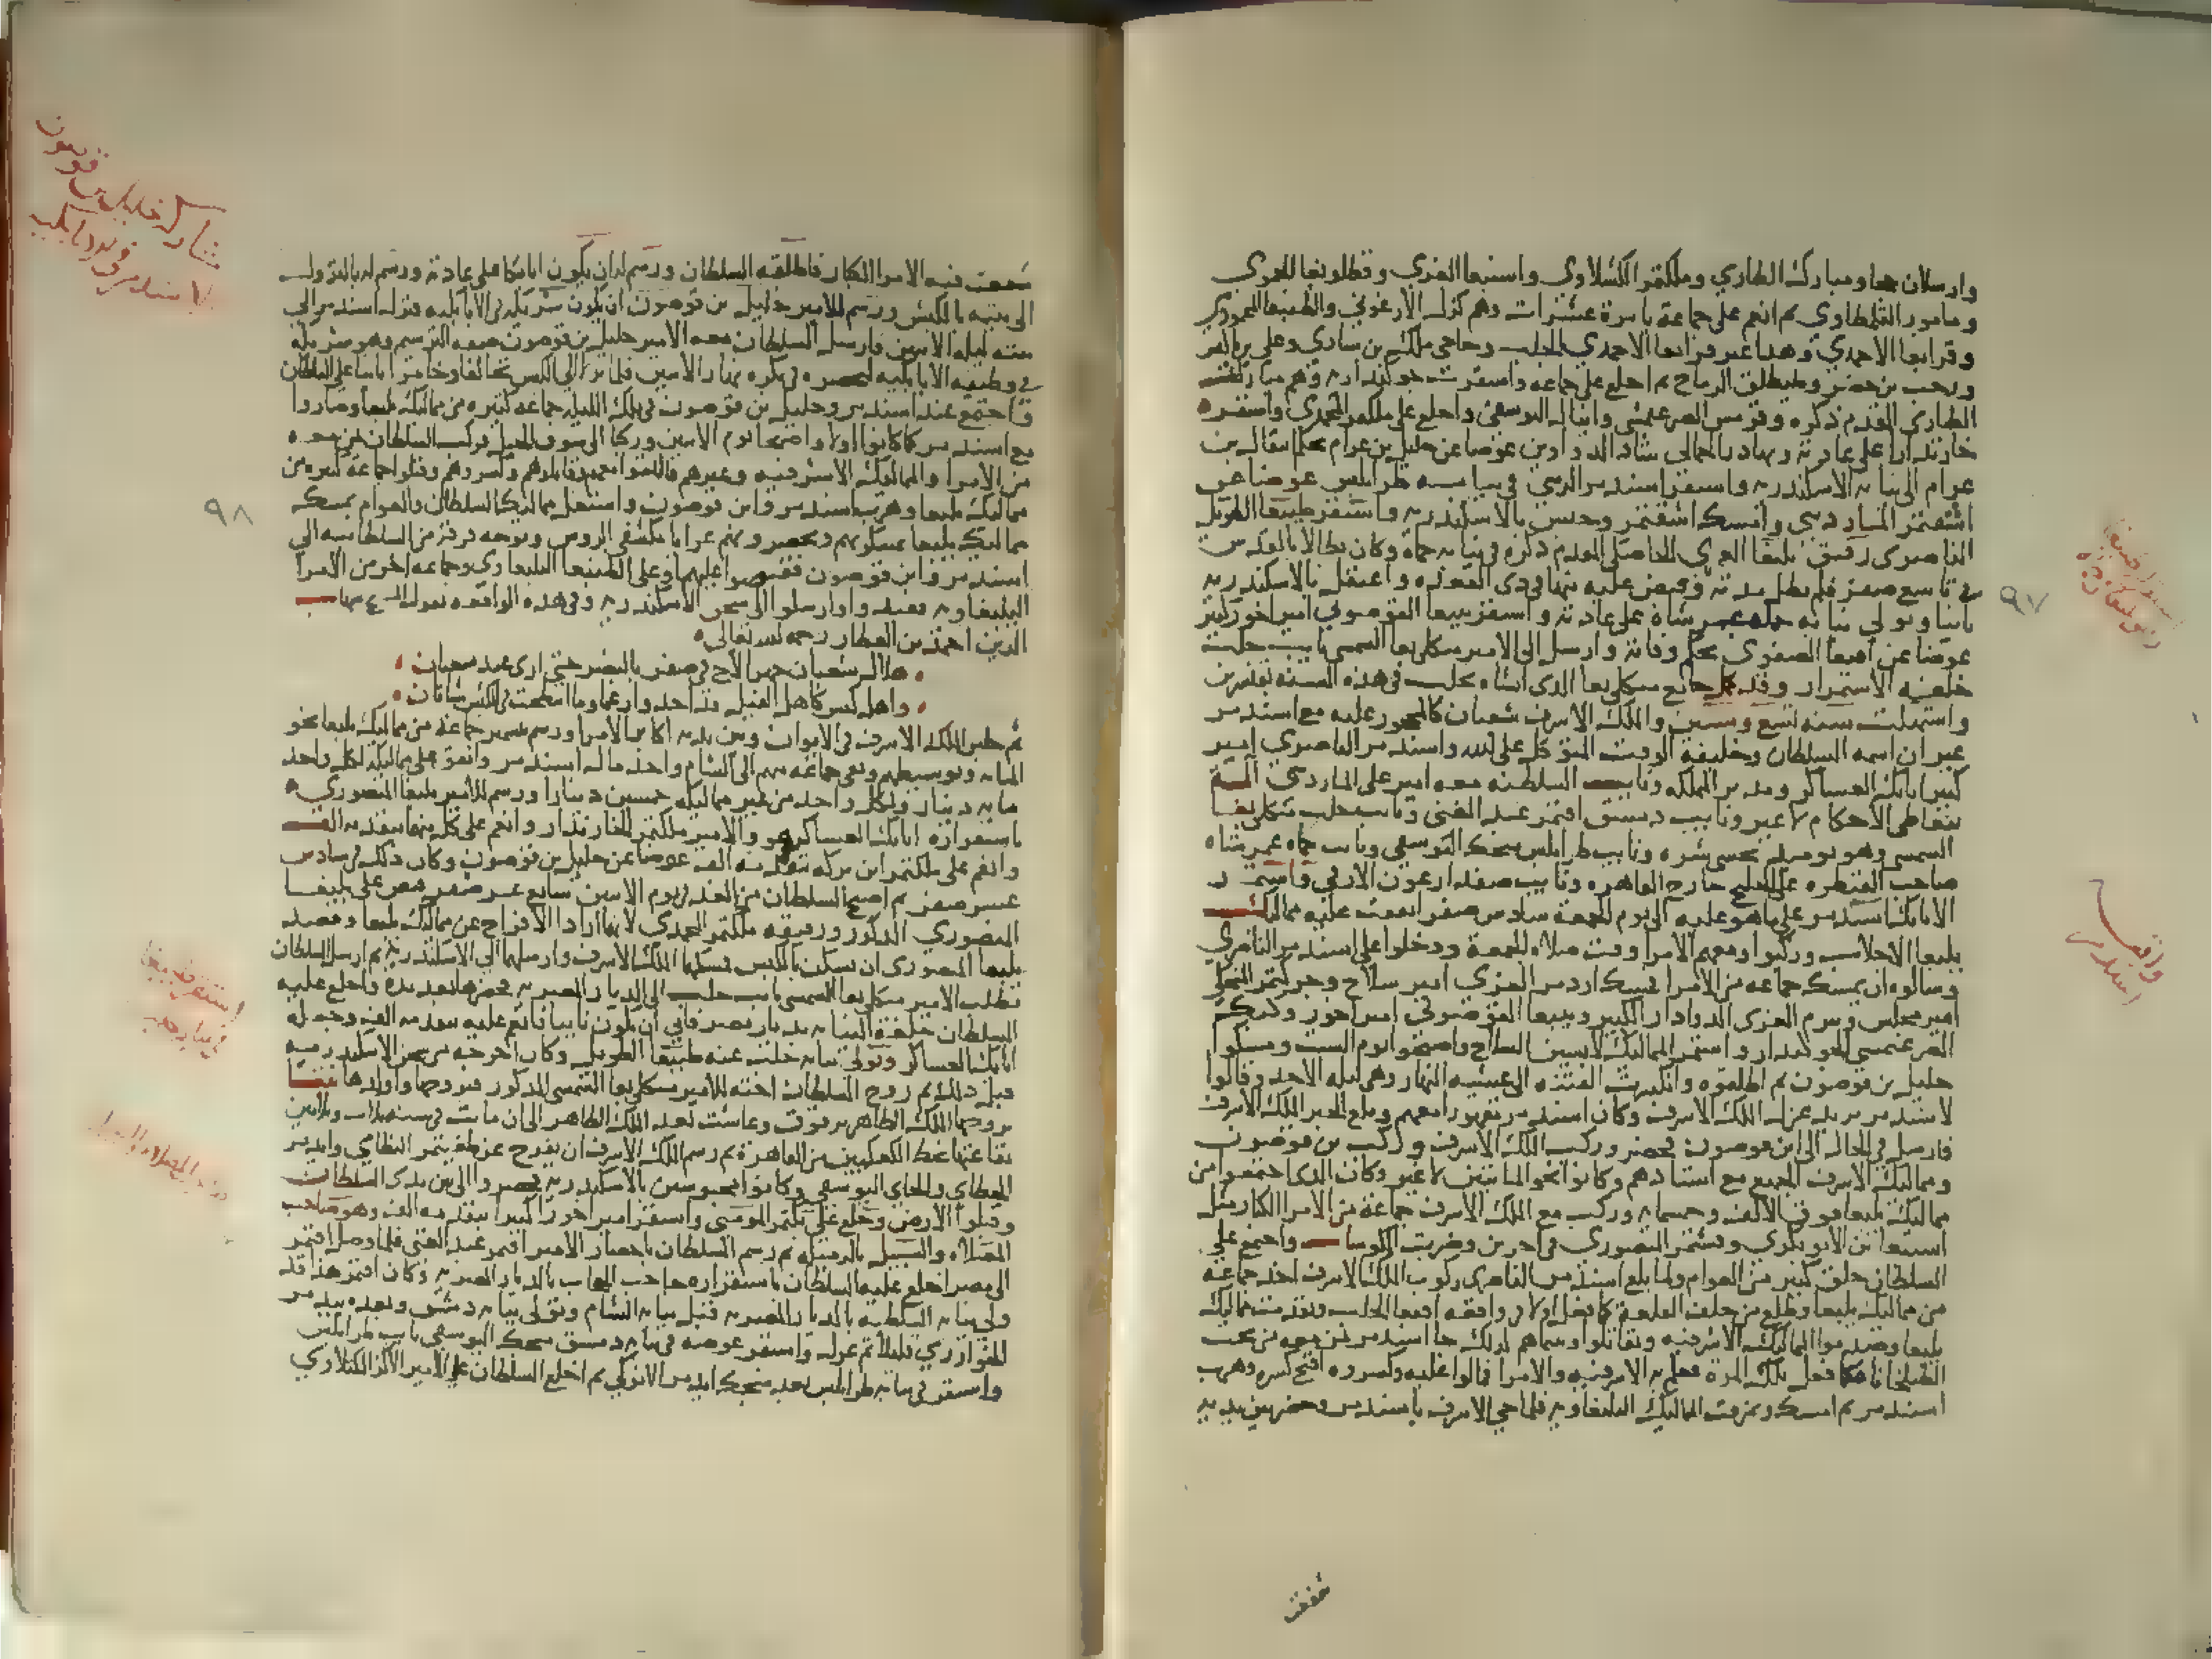 وارسلان بغا ومبارك الطازي وملكتمر الكشلاوي واسنبغا العزي وقطلوبغا الحموي
ومامور القلمطاوي ثم انعم على جماعة بامرة عشرات وهم كزل الارغوني والطنبغا المحمودي
وقرابغا الاحمدي وهذا غير قرابغا الاحمدي الجلب وحاجي ملك بن شادي وعلي بن
ورجب بن خضر وطيطلق الرماح ثم اخلع على جماعة واستقرت جوكندارية وهم مبارك
الطازي المقدم ذكره وقرمش الصرغتمشي واينال اليوسفي واخلع على ملكتمر المحمدي واستقر
خازندارا على عادته وبهادر الجمالي شاد الدواوين عوضا عن خليل بن عرام بحكم انتقال بن
عرام الى نيابة الاسكندرية واستقر اسندمر الزيني في نيابة طرابلس عوضا عن
اشقتمر المارديني وامسك اشقتمر وحبس بالاسكندرية واستقر طيبغا الطويل
الناصري رفيق يلبغا العمري الخاصكي المقدم ذكره في نيابة حماة وكان بطالا بالقدس
في تاسع صفر فلم تطل مدته وقبض عليه منها في ذي القعدة واعتقل بالاسكندرية
ثانيا وتولي نيابة حماه عمر شاه على عادته واستقر بيبغا القوصوني امير اخور كبير
عوضا عن اقبغا الصفوي بحكم وفاته وارسل الى الامير منكلي بغا الشمسي نايب حلب
خلعة الاستمرار وقد كمل جامع منكلي بغا الذي انشاه بحلب في هذه السنة
واستهلت سنة تسع وستين والملك الاشرف شعبان كالمحجور عليه مع اسندمر
غير ان اسمه السلطان وخليفة الوقت المتوكل على الله واسندمر الناصري امير
كبير اتابك العساكر ومدبر المملكه ونايب السلطنه معه امير علي المارديني
يتعاطى الاحكام لا غير ونايب دمشق اقتمر عبد الغني ونايب حلب منكلي بغا
الشمسي وهو يوميذ يخشى شره ونايب طرابلس منجك اليوسفي ونايب حماه عمر شاه
صاحب القنطره على الخليج خارج القاهره ونايب صفد ارغون الازقي واستمر
الاتابك اسندمر على ما هو عليه الى يوم الجمعة سادس صفر اتفقت عليه مماليك
يلبغا الاجلاب وركبوا ومعهم الامرا وقت صلاه الجمعة ودخلوا على اسندمر الناصري
وسالوه ان يمسك جماعه من الامرا فمسك ازدمر العزي امير سلاح وجركتمر المنجكي
امير مجلس وبيرم العزي الدوادار الكبير وبيبغا القوصوني امير اخور وكبك
الصرغتمشي الجوكندار واستمر المماليك لابسين السلاح واصبحوا يوم السبت ومسكوا
خليل بن قوصون ثم اطلقوه وانكسرت الفتنه الى عشيه النهار وهي ليله الاحد وقالوا
لاسندمر نريد عزل الملك الاشرف وكان اسندمر مقهورا معهم وبلغ الخبر الملك الاشرف
فارسل في الحال الى ابن قوصون فحضر وركب الملك الاشرف وركب بن قوصون
ومماليك الاشرف الجميع مع استادهم وكانوا نحو المائتين لا غير وكان الذي اجتمعوا من
مماليك يلبغا فوق الالف وخمسمايه وركب مع الملك الاشرف جماعة من الامرا الكبار مثل
اسنبغا بن الابوبكري وقشتمر المنصوري في اخرين وضربت الكوسات واجتمع على
السلطان خلق كبير من العوام ولما بلغ اسندمر الناصري ركوب الملك الاشرف اخذ جماعة
من مماليك يلبغا وطلع من خلف القلعة كما فعل اولا في واقعه اقبغا الجلب وتقدمت مماليك
يلبغا وصدموا المماليك الاشرفيه وتقاتلوا وبينما هم كذلك جا اسندمر بمن معه من تحت
الطبلخاناه كما فعل تلك المرة فعلم به الاشرفيه والامرا فمالوا عليه وكسروه اقبح كسره وهرب
اسندمر ثم امسك وتمزقت المماليك اليلبغاويه فلما جي الاشرف باسندمر وحضر بين يديه
شفعت
استقرار طيبغا
واقعه
اسندمر
٩٧
شفعت فيه الامرا الكبار فاطلقه السلطان ورسم له ان يكون اتابكا على عادته ورسم له بالنزول
الى بيته بالكبش ورسم للامير خليل بن قوصون ان يكون شريكه في الاتابكيه فنزل اسندمر الى
بيته ليله الاثنين وارسل السلطان معه الامير خليل بن قوصون صفه الترسيم وهو شريكه
في وظيفه الاتابكيه ليحضره في بكره نهار الاثنين فلما نزلا الى الكبش تحالفا وخامرا ثانيا على السلطان
واجتمع عند اسندمر وخليل بن قوصون في تلك الليله جماعه كبيره من مماليك يلبغا وصاروا
مع اسندمر كما كانوا اولا واصبحا يوم الاثنين وركبا الى سوق الخيل فركب السلطان بمن معه
من الامرا والمماليك الاشرفيه وغيرهم فالتقوا معهم وقاتلوهم وكسروهم وقتلوا جماعة كبيره من
مماليك يلبغا وهرب اسندمر وابن قوصون واشتغل مماليك السلطان والعوام بمسك
مماليك يلبغا يمسكونهم ويحضرونهم عرايا مكشفي الروس وتوجه فرقة من السلطانيه الى
اسندمر وابن قوصون فقبضوا عليهما وعلى الطنبغا اليلبغاوي وجماعه اخر من الامرا
اليلبغاويه فقيدوا وارسلوا الى سجن الاسكندريه وفي هذه الواقعه يقول الشيخ شهاب
الدين احمد بن العطار رحمه الله تعالى
هلال شعبان جهرا لاح في صفر بالنصر حتى ارى عيد شعبان
واهل كبس كاهل الفيل قد اخذوا رغما وما انتطحت في الكبش شاتان
ثم جلس الملك الاشرف في الايوان وبين يديه اكابر الامرا ورسم بتسمير جماعة من مماليك يلبغا نحو
المايه وتوسيطهم ونفى جماعه منهم الى الشام واخذ مال اسندمر وانفق على مماليكه لكل واحد
مايه دينار ولكل واحد من غير مماليكه خمسين دينارا ورسم للامير يلبغا المنصوري
باستقراره اتابك العساكر هو والامير ملكتمر الخازندار وانعم على كل منهما بتقدمه الف
وانعم على تلكتمر ابن بركه بتقدمه الف عوضا عن خليل بن قوصون وكان ذلك في سادس
عشر صفر ثم اصبح السلطان من الغد في يوم الاثنين سابع عشر صفر قبض على يلبغا
المنصوري المذكور ورفيقه ملكتمر المحمدي لانهما ارادا الافراج عن مماليك يلبغا وقصد
يلبغا المنصوري ان يسكن بالكبش فمسكهما الملك الاشرف وارسلهما الى الاسكندرية ثم ارسل السلطان
بطلب الامير منكلي بغا الشمسي نايب حلب الى الديار المصريه فحضرها بعد مده واخلع عليه
السلطان خلعة النيابه بديار مصر فابى ان يكون نايبا فانعم عليه بتقدمه الف وجعله
اتابك العساكر وتولي نيابه حلب عنه طيبغا الطويل وكان اخرجه من سجن الاسكندريه
قبل ذلك ثم زوج السلطان اخته للامير منكلي بغا الشمسي المذكور فتزوجها واولدها
تزوجها الملك الظاهر برقوق وعاشت بعد الملك الظاهر الى ان ماتت في سنه ثلاث وثلاثين
بقاعتها بخط الكعكيين من القاهرة ثم رسم الملك الاشرف ان يفرج عن طغيتمر النظامي وايدمر
الخطاي والجاي اليوسفي وكانوا محبوسين بالاسكندريه فحضروا الى بين يدي السلطان
وقبلوا الارض وخلع على بكتمر المومني واستقر امير اخور كبيرا بتقدمه الف وهو صاحب
المصلاه والسبيل بالرميله ثم رسم السلطان باحضار الامير اقتمر عبد الغني فلما وصل اقتمر
الى مصر اخلع عليه السلطان باستقراره حاجب الحجاب بالديار المصريه وكان اقتمر هذا قد
ولي نيابه السلطنه بالديار المصريه قبل نيابه الشام وتولى نيابه دمشق بعده بيدمر
الخوارزمي قليلا ثم عزل واستقر عوضه في نيابه دمشق منجك اليوسفي نايب طرابلس
واستقر في نيابه طرابلس بعد منجك ايدمر الانوكي ثم اخلع السلطان على الامير الاكز الكشلاوي
شارك خليل بن قوصون
لاسندمر
استقرار منكلي بغا
٩٨